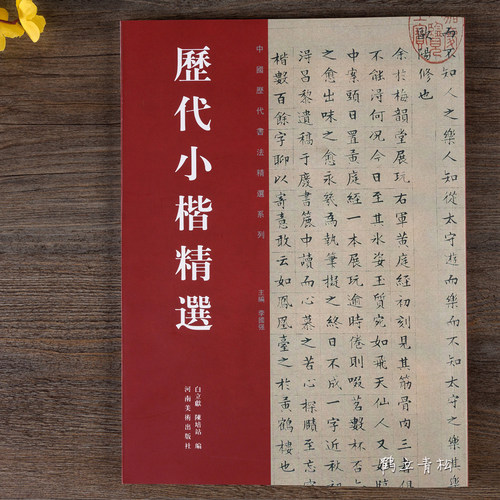 歷代小楷精選
中國歷代書法精選系列
主編 李國強
白立獻 陳培站 編
河南美術出版社
而不知人之樂人知從太守遊而樂而不知太守之樂其樂
歐陽修也
余於梅韻堂展玩右軍黃庭經初刻見其筋骨肉三者俱
不能得何況今日至其水姿玉質宛如飛天仙人又如
中案頭日置黃庭經一本展玩逾時倦則啜茗數杯否
之愈出味之愈永裝為執筆擬之終日不成一字近秋初
得呂黎遺稿于慶書簏中讀而心慕之苦心探賾至忘寢
楷數百餘字聊以寄意敢云如鳳凰臺之於黃鶴樓也
鶴立青松